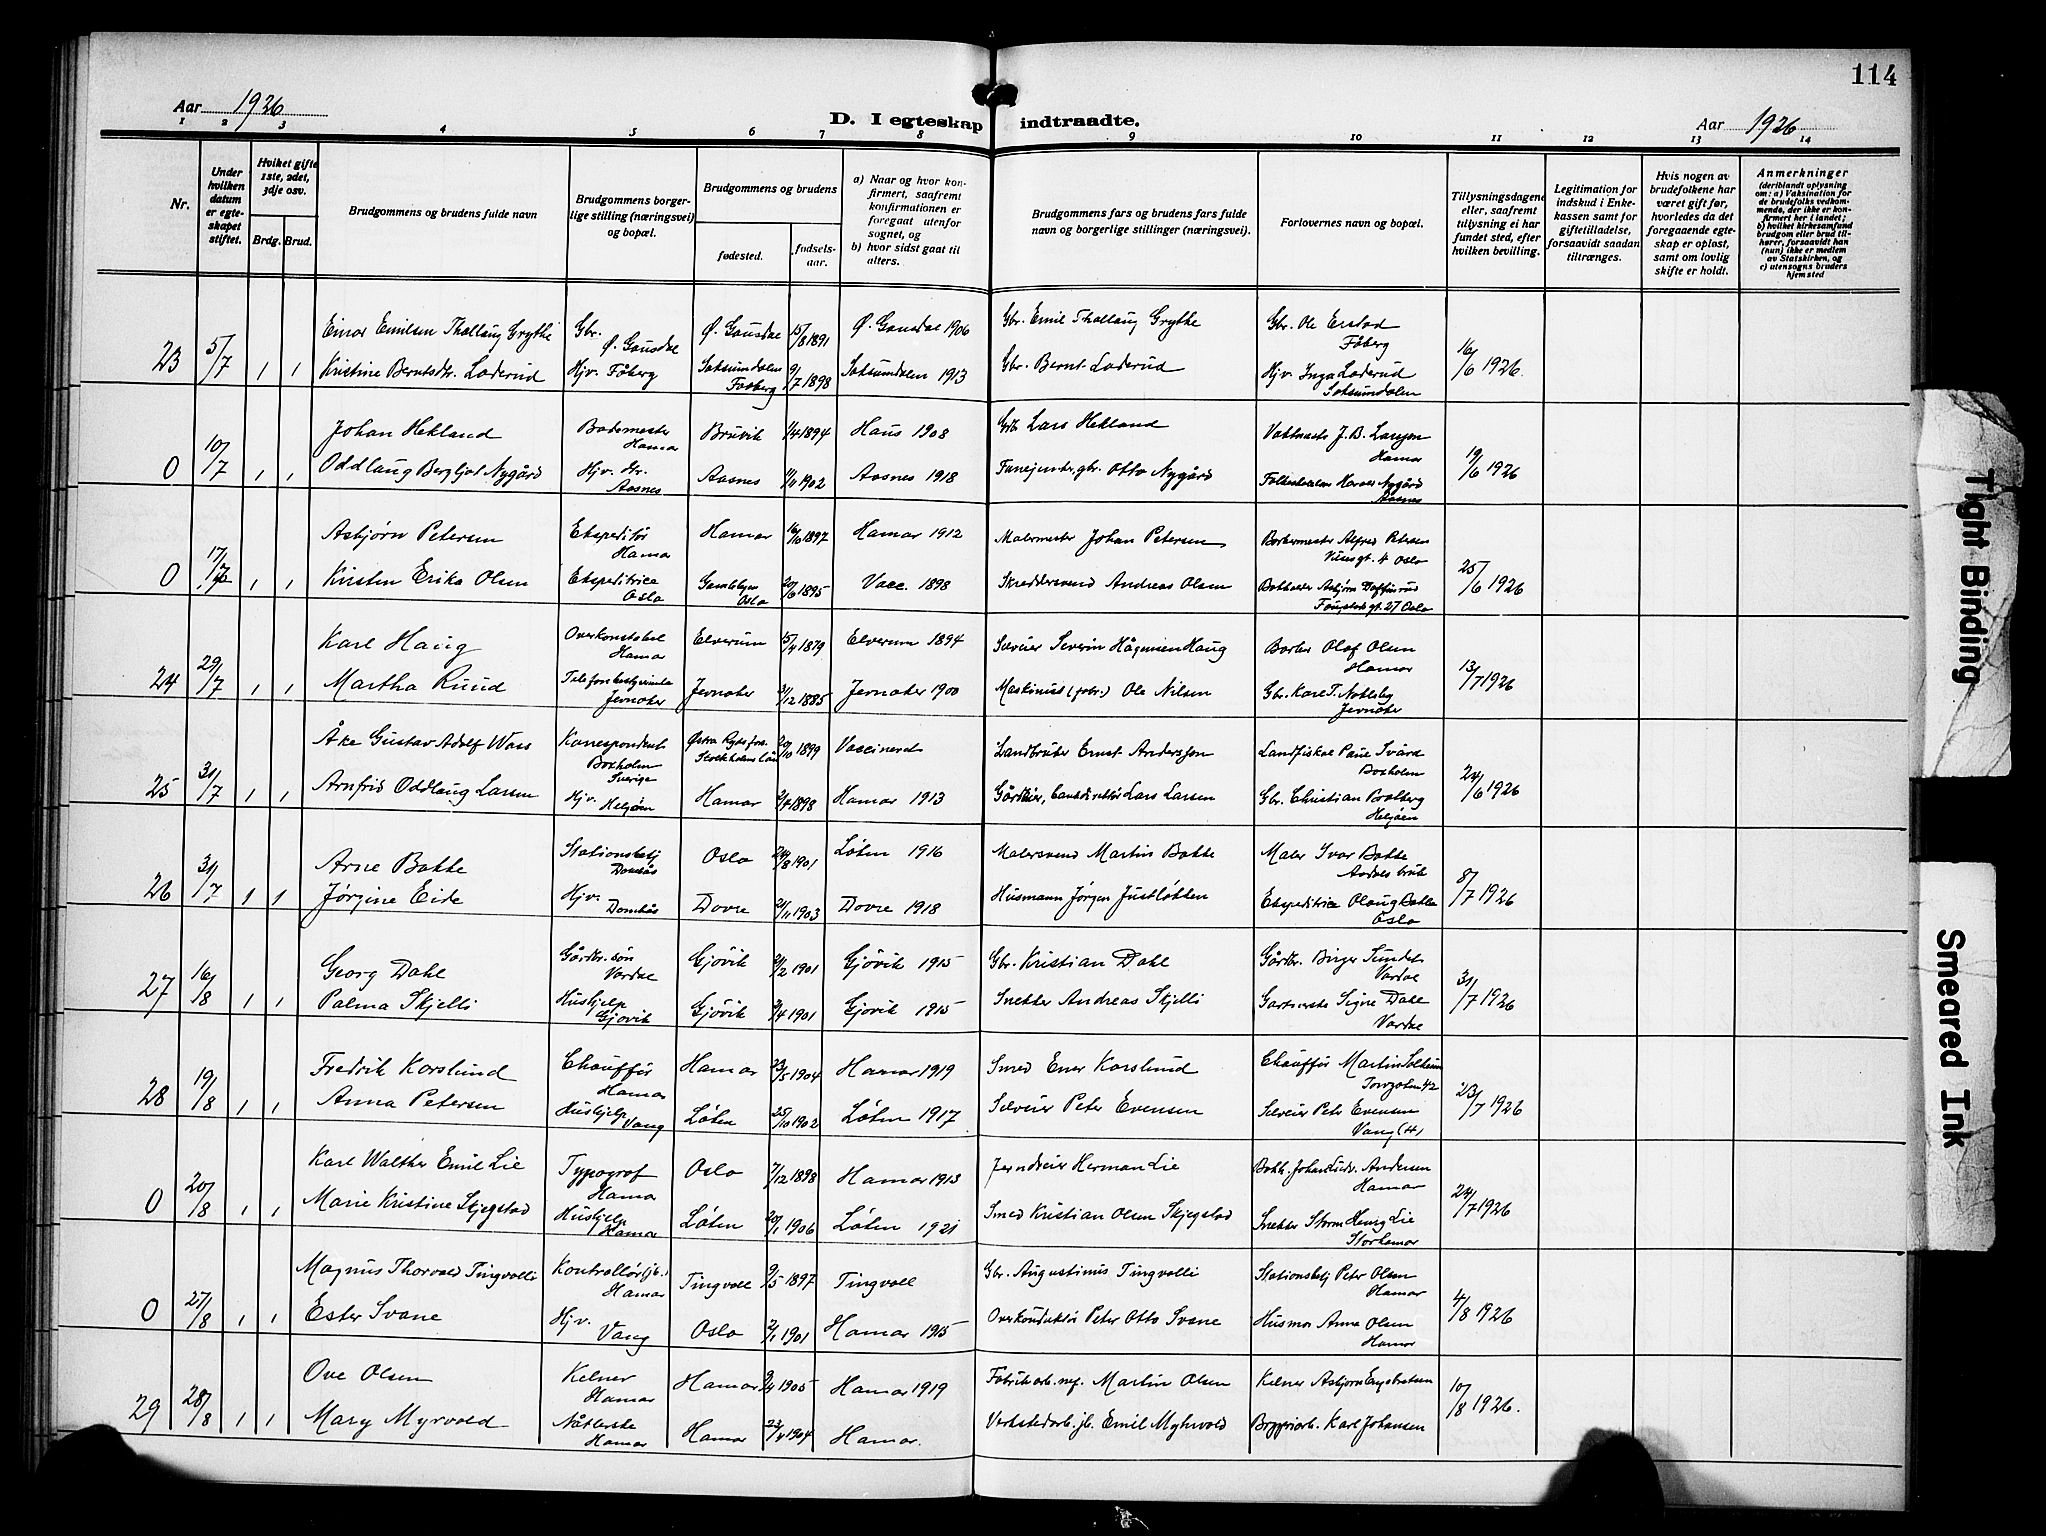 114
Aar 1926
D. I egteskap indtraadte.
Aar 1926
1 2 3 4 5 6 7 8 9 10 11 12 13 14
Nr.
Under hvilken datum er egteskapet stiftet.
Hvilket gifte 1ste, 2det, 3dje osv.
Brdg. Brud.
Brudgommens og brudens fulde navn
Brudgommens borgerlige stilling (næringsvei) og bopæl.
Brudgommens og brudens
fødested.
fødselsaar.
a) Naar og hvor konfirmert, saafremt konfirmationen er foregaat utenfor sognet, og
b) hvor sidst gaat til alters.
Brudgommens fars og brudens fars fulde navn og borgerlige stillinger (næringsvei).
Forlovernes navn og bopæl.
Tillysningsdagene eller, saafremt tillysning ei har fundet sted, efter hvilken bevilling.
Legitimation for indskud i Enkekassen samt for giftetilladelse, forsaavidt saadan tiltrænges.
Hvis nogen av brudefolkene har været gift før, hvorledes da det foregaaende egteskap er opløst, samt om lovlig skifte er holdt.
Anmerkninger
(deriblandt oplysning om: a) Vaksination for de brudefolks vedkommende, der ikke er konfirmert her i landet; b) hvilket kirkesamfund brudgom eller brud tilhører, forsaavidt han (hun) ikke er medlem av Statskirken, og c) utensogns bruders hjemsted
Einar Emilsen Thallaug Grythe Gbr. Ø. Gausdal Ø. Gausdal 15/8 1891 Ø. Gausdal 1906 Gbr. Emil Thallaug Grythe Gbr. Ole Erstad Fåberg
23 5/7 1 1 Kristine Berntsdtr. Laderud Hjv. Fåberg Saksumdalen Faaberg 9/7 1898 Saksumdalen 1913 Gbr. Bernt Laderud Hjv. Inga Laderud Saksumdalen 16/6 1926.
Johan Hekland Bademester Hamar Bruvik 1/4 1894 Haus 1908 Lars Hekland J. B. Larssen Hamar
0 10/7 1 1 Oddlaug Bergljot Nygård Hjv. Gr. Aasnes Aasnes 1/11 1902 Aasnes 1918 gbr. Otto Nygård Nygård Aasnes 19/6 1926
Asbjørn Petersen Ekspeditør Hamar Hamar 16/10 1897 Hamar 1912 Malermester Johan Petersen Barbermester Alfred Petersen gt. 4 Oslo
0 17/7 1 1 Kirsten Erika Olsen Ekspeditrice Oslo Gamlebyen Oslo 20/6 1895 Vacc. 1898 Skreddersvend Andreas Olsen Bokholder Asbjørn gt. 27 Oslo 25/6 1926
Karl Haug Overkonstabel Hamar Elverum 15/4 1879 Elverum 1894 Selveier Severin Hågensen Haug Barber Olaf Olsen Hamar
24 29/7 1 1 Martha Ruud Telefonbestyrerinde Jevnaker Jevnaker 3/12 1885 Jevnaker 1900 Maskinist (fabr.) Ole Nilsen Gbr. Karl T. Jevnaker 13/7 1926
Åke Gustav Adolf Wass Korrespondent Boxholm Sverige Østra Ryds fors. Stockholms län 20/10 1899 Vaccinerad Landbruker Ernst Andersson Landfiskal Paul Svärd Boxholm
25 31/7 1 1 Arnfrid Oddlaug Larsen Hjv. Helgøen Hamar 2/4 1898 Hamar 1913 Gårdeier, bankdirektør Lars Larsen Gbr. Christian Helgøen 24/6 1926
Arne Bakke Stationsbetj Dombås Oslo 24/8 1901 Løten 1916 Malersvend Martin Bakke Maler Ivar Bakke Aadals bruk
26 31/7 1 1 Jørgine Eide Hjv. Dombås Dovre 21/11 1903 Dovre 1918 Husmann Jørgen Justløkken Ekspeditrice Olaug Bakke Oslo 8/7 1926
Georg Dahl Gårdbr. søn Vardal Gjøvik 2/2 1901 Gjøvik 1915 Gbr. Kristian Dahl Gårdbr. Birger Sundet Vardal
27 16/8 1 1 Palma Skjelli Hushjelp Gjøvik Gjøvik 3/4 1901 Gjøvik 1915 Snekker Andreas Skjelli Signe Dahl Vardal 31/7 1926
Fredrik Korslund Chauffør Hamar Hamar 23/5 1904 Hamar 1919 Smed Ener Korslund Chauffør Martin Solheim Torvgaten 42
28 19/8 1 1 Anna Petersen Hushjelp Vang Løten 25/10 1902 Løten 1917 Selveier Peter Evensen Selveier Petr Evensen Vang (H) 23/7 1926
Karl Walther Emil Lie Typograf Hamar Oslo 7/12 1898 Hamar 1913 Jerndreier Herman Lie Bokh. Johan Andersen Hamar
0 20/8 1 1 Marie Kristine Skjegstad Hushjelp Hamar Løten 20/1 1906 Løten 1921 Smed Kristian Olsen Skjegstad Snekker Storm Henry Lie Storhamar 24/7 1926
Magnus Thorvald Tingvalli Kontrollør (jb.) Hamar Tingvoll 9/5 1897 Tingvoll Gbr. Augustinus Tingvolli Stationsbetj Peter Olsen Hamar
0 27/8 1 1 Ester Svane Hjv. Vang Oslo 2/1 1901 Hamar 1915 Overkonduktør Peter Otto Svane Husmor Anna Olsen Hamar 4/8 1926
Ove Olsen Kelner Hamar Hamar 9/4 1905 Hamar 1919 Fabrikarb. Martin Olsen Kelner Asbjørn Engebretsen
29 28/8 1 1 Mary Myrvold Nåtlerske Hamar Hamar 23/4 1904 Hamar. Verkstedarb. jb. Emil Myhrvold Bryggeriarb. Karl Johansen 10/8 1926.
Tight Binding
Smeared Ink